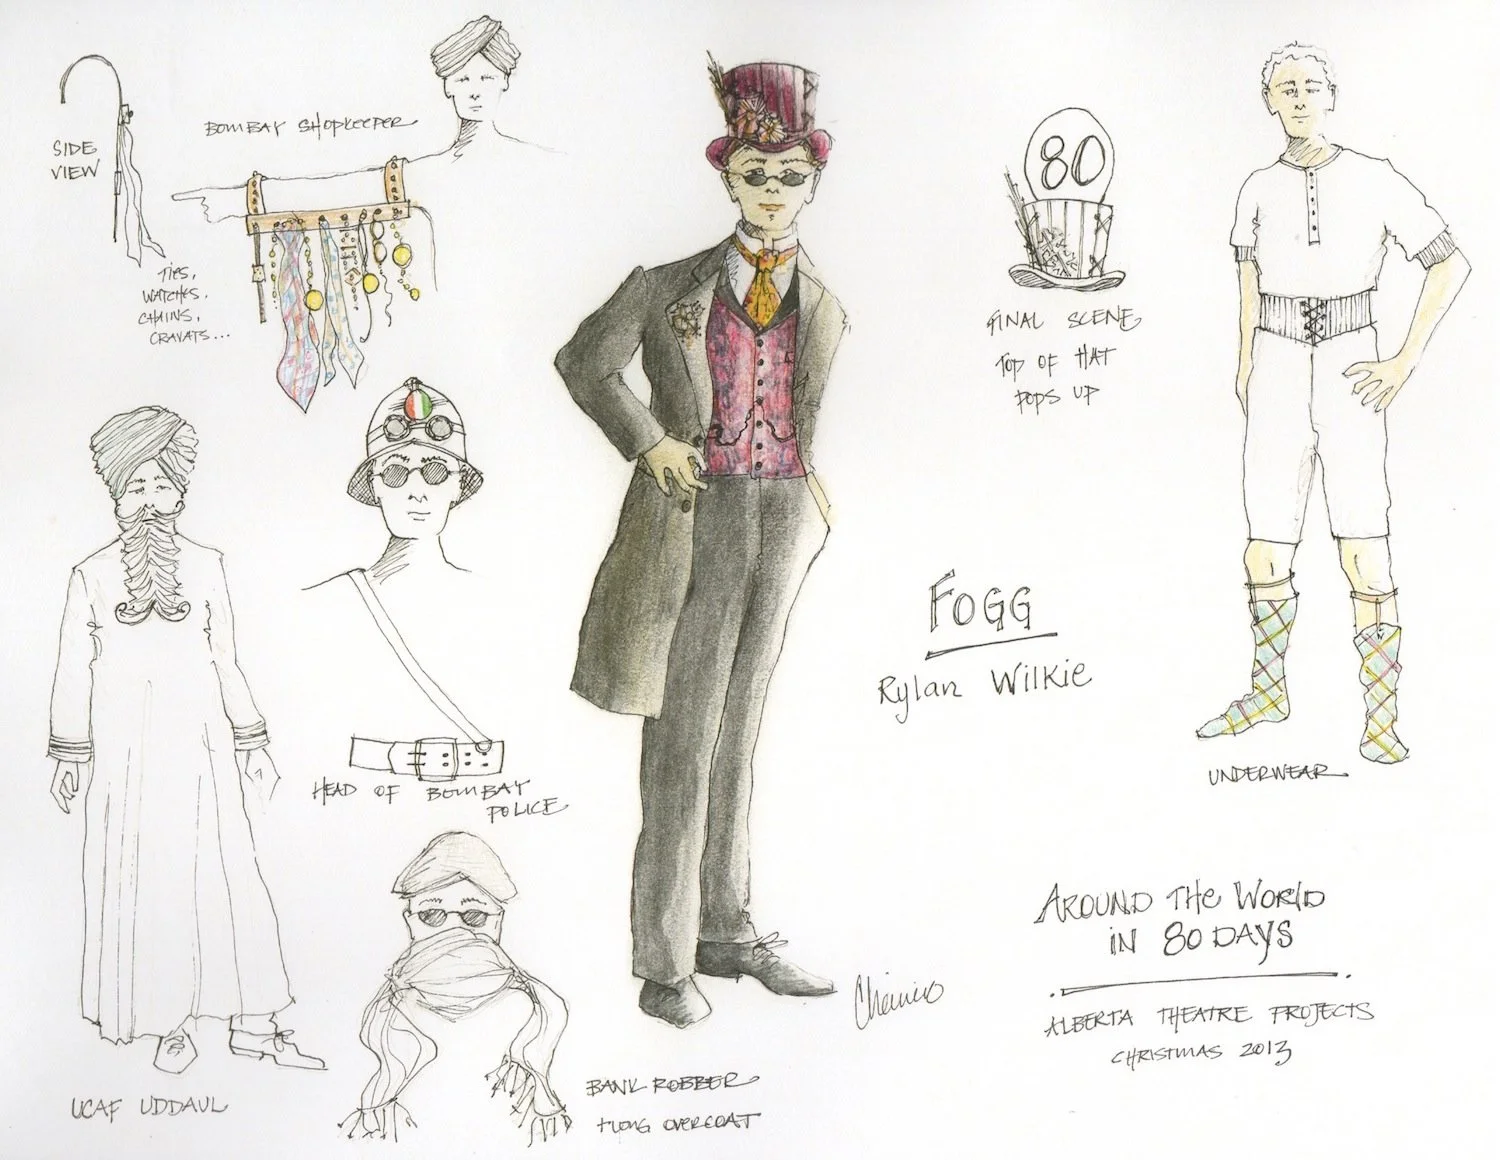 SIDE
VIEW
BOMBAY SHOPKEEPER
TIES,
WATCHES,
CHAINS,
CRAVATS...
80
FINAL SCENE
TOP OF HAT
POPS UP
FOGG
Rylan Wilkie
UNDERWEAR
HEAD OF BOMBAY
POLICE
AROUND THE WORLD
IN 80 DAYS
ALBERTA THEATRE PROJECTS
CHRISTMAS 2013
UCAF UDDAUL
BANK ROBBER
+ LONG OVERCOAT